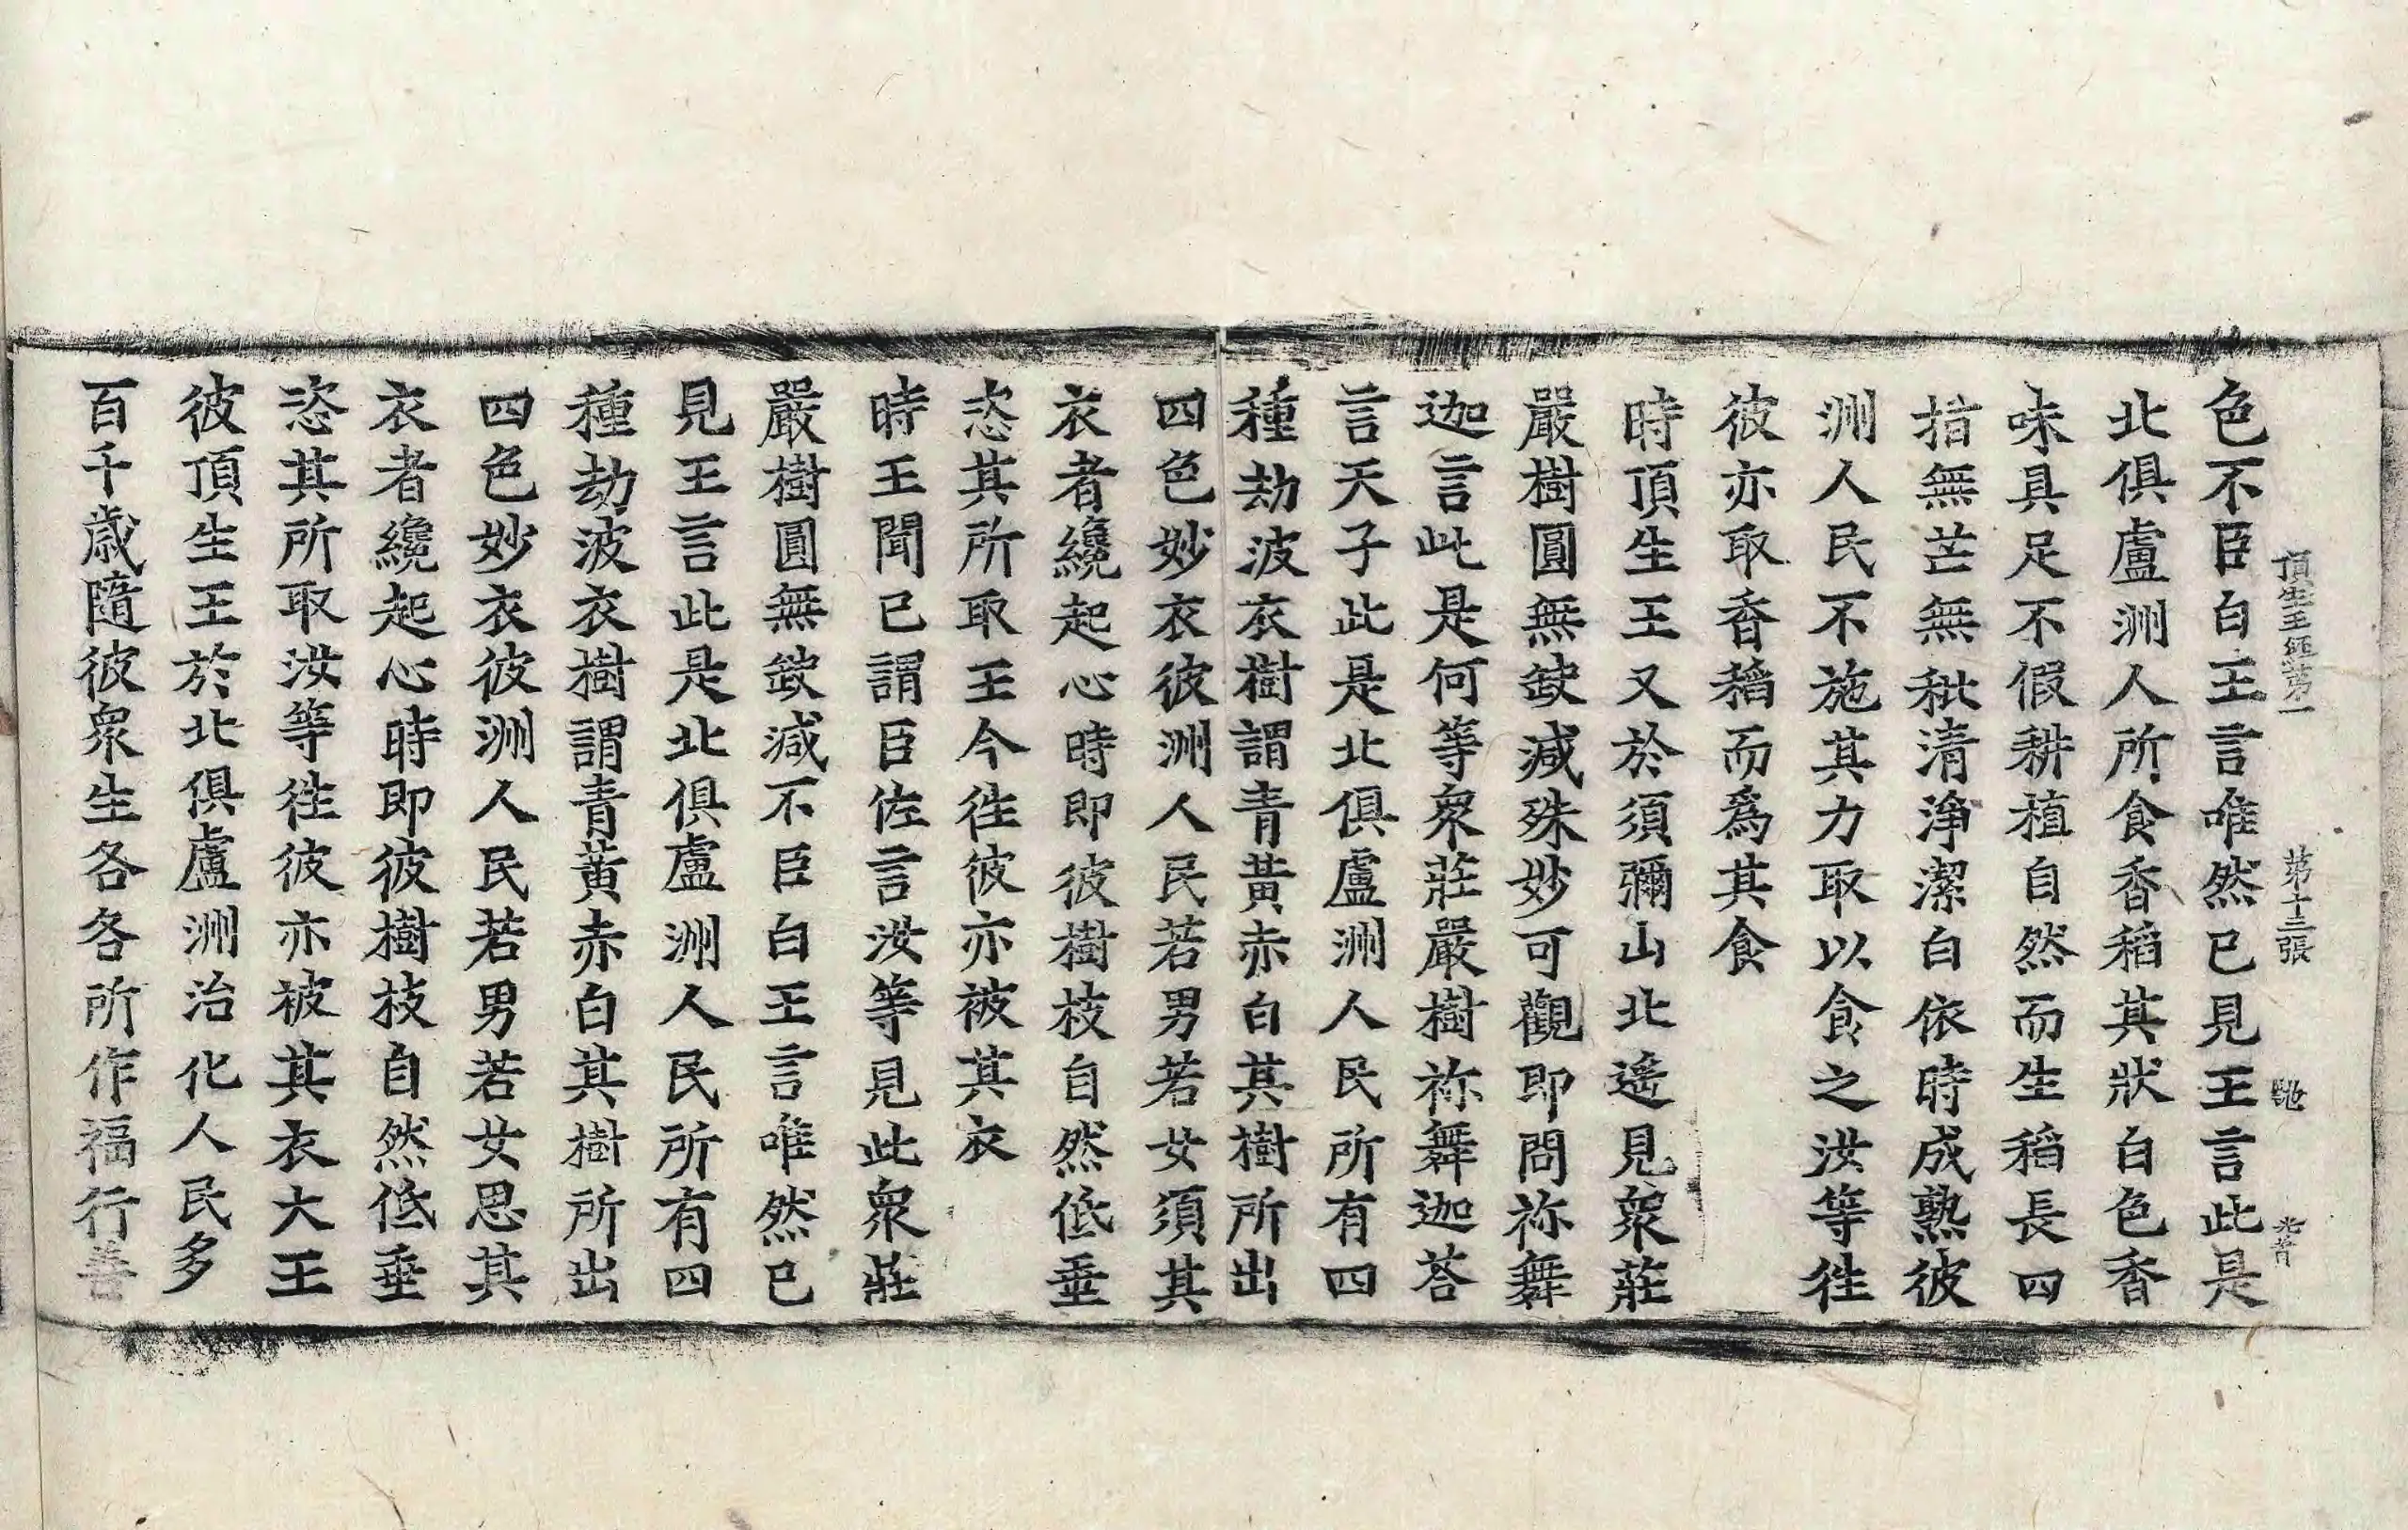 頂生王經第一 第十三張 馳
色不臣白王言唯然已見王言此是
北俱盧洲人所食香稻其狀白色香
味具足不假耕植自然而生稻長四
指無芒無秕清淨潔白依時成熟彼
洲人民不施其力取以食之汝等徃
彼亦取香稻而爲其食
時頂生王又於須彌山北遙見衆莊
嚴樹圓無䥷減殊妙可觀即問祢舞
迦言此是何等衆莊嚴樹祢舞迦荅
言天子此是北俱盧洲人民所有四
種劫波衣樹謂青黃赤白其樹所出
四色妙衣彼洲人民若男若女須其
衣者纔起心時即彼樹枝自然低垂
恣其所取王今徃彼亦被其衣
時王聞已謂臣佐言汝等見此衆莊
嚴樹圓無䥷減不臣白王言唯然已
見王言此是北俱盧洲人民所有四
種劫波衣樹謂青黃赤白其樹所出
四色妙衣彼洲人民若男若女思其
衣者纔起心時即彼樹枝自然低垂
恣其所取汝等徃彼亦被其衣大王
彼頂生王於北俱盧洲治化人民多
百千歲隨彼衆生各各所作福行善